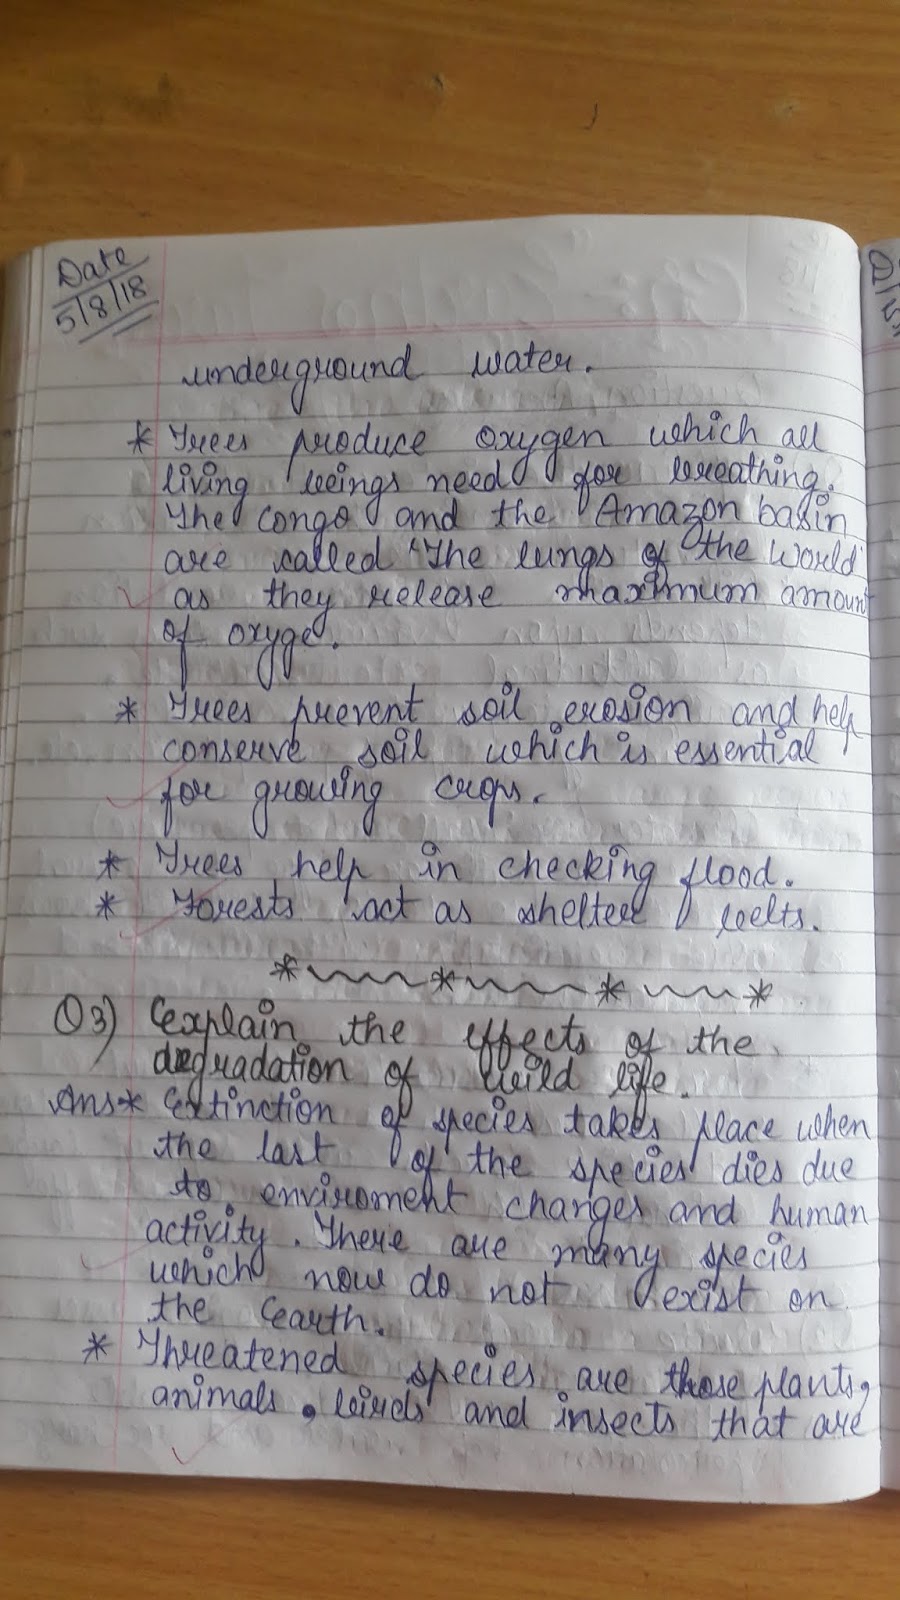 Date
5/8/18
underground water.
* Trees produce oxygen which all
living beings need for breathing.
The Congo and the Amazon basin
are called "The lungs of the World
as they release maximum amount
of oxyge.
* Trees prevent soil erosion and help
conserve soil which is essential
for growing crops.
* Trees help in checking flood.
* Forests act as shelter belts.
Q3) Explain the effects of the
degradation of wild life.
Ans* Extinction of species takes place when
the last of the species dies due
to enviroment changes and human
activity. There are many species
which now do not exist on
the Earth.
* Threatened species are those plants,
animals, birds and insects that are